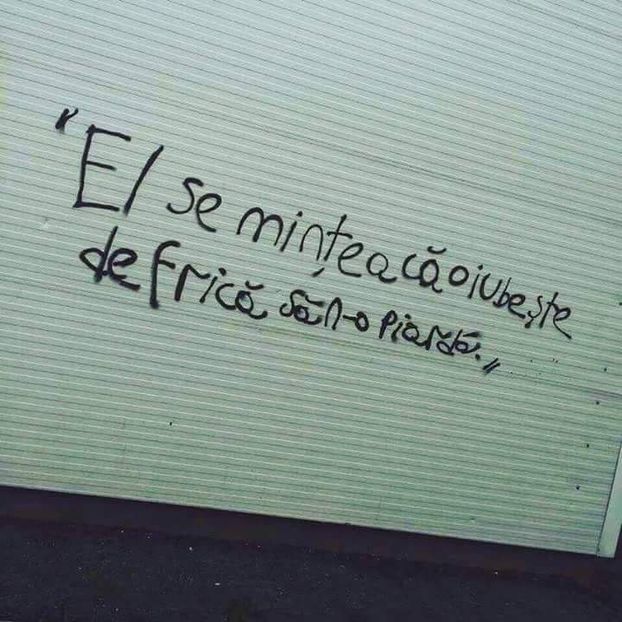 "El se mințea că o iubește
de frică să n-o piardă."